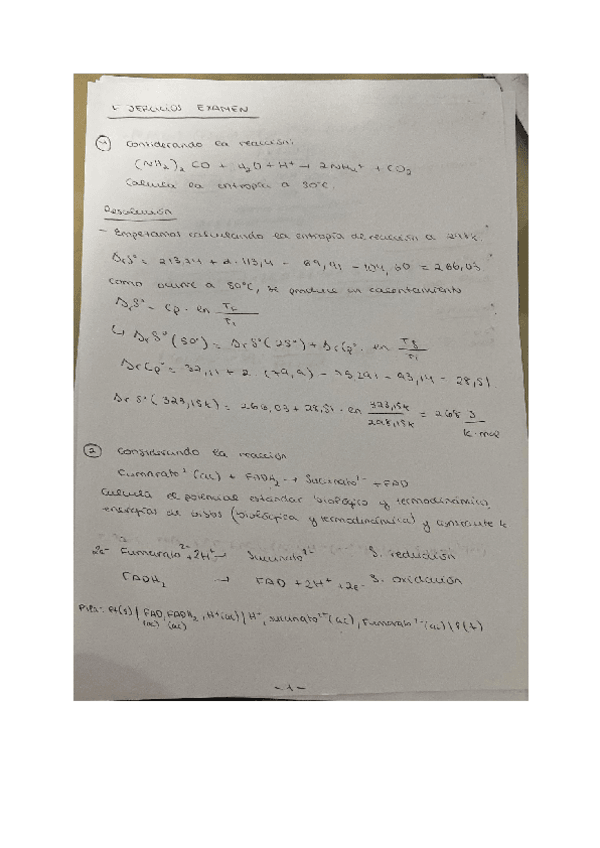 EJERCICIOS EXAMEN
1 Considerando la reacción:
(NH2)2 CO + H2O + H+ → 2NH4+ + CO2
Calcula la entropía a 50°C.
Resolución
- Empezamos calculando la entropía de reacción a 298K.
ΔrS° = 213,74 + 2·113,4 - 69,91 - 104,60 = 266,03
Como ocurre a 50°C, se produce un calentamiento
ΔrS° = Cp · ln T2/T1
↳ ΔrS°(50°) = ΔrS°(25°) + ΔrCp° · ln Tf/Ti
ΔrCp° = 37,11 + 2·(79,9) - 75,291 - 93,14 = 28,51
ΔrS°(323,15K) = 266,03 + 28,51 · ln 323,15K/298,15K = 268 J/K·mol
2 Considerando la reacción
Fumarato2-(ac) + FADH2 → Succinato2- + FAD
Calcula el potencial estándar biológico y termodinámico,
energías de Gibbs (biológica y termodinámica) y
2e- Fumarato2- + 2H+ → Succinato2- S. reducción
FADH2 → FAD + 2H+ + 2e- S. oxidación
Pila: Pt(s) | FAD, FADH2, H+(ac) | H+, succinato2-(ac), Fumarato2-(ac) | Pt(s)
(ac) (ac)
-1-